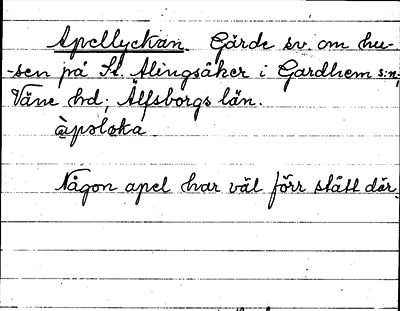 Apellyckan. Gärde sv. om hu-
-sen på St. Alingsåker i Gardhem s:n,
Väne hd, Älfsborgs län.
àpoloka
Någon apel har väl förr stått där.